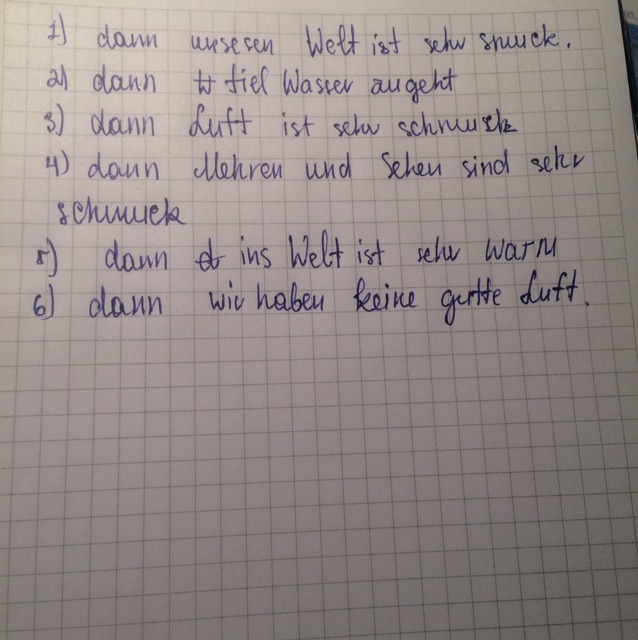 1) dann unsesen Welt ist sehr smuck.
2) dann fiel Wasser ausgeht
3) dann Luft ist sehr schmuck
4) dann Mehren und Sehen sind sehr
schmuck
5) dann ins Welt ist sehr warm
6) dann wir haben keine gutte Luft.